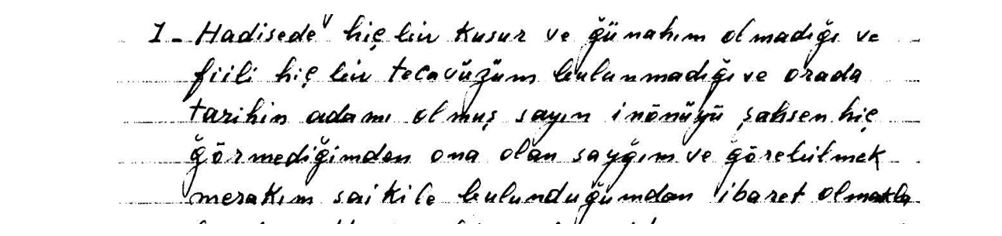 1- Hadisede hiç bir kusur ve günahım olmadığı ve
fiili hiç bir tecavüzüm bulunmadığı ve orada
tarihin adamı olmuş sayın inönüyü şahsen hiç
görmediğimden ona olan saygım ve görebilmek
merakım saikile bulunduğumdan ibaret olmakla